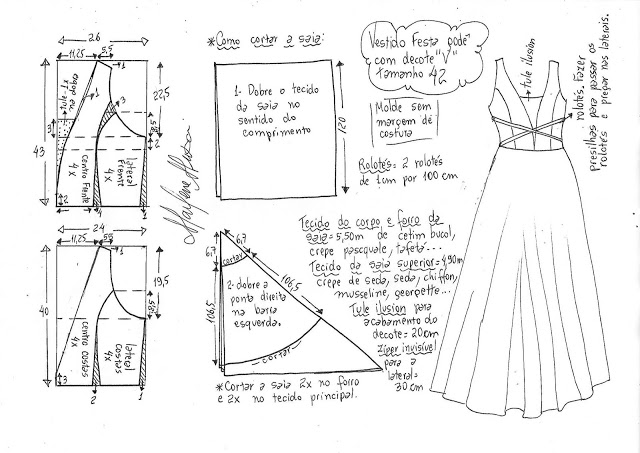 *Como cortar a saia:
Vestido Festa podê
com decote "V"
tamanho 42
Molde sem
margem de
costura
Rolotês= 2 rolotês
de 1cm por 100 cm
tule ilusion
rolotês. Fazer
presilhas para passar os
rolotês e pregar nas laterais.
1- Dobre o tecido
da saia no
sentido do
comprimento
120
26
11,25
5,5
1
22,5
tule - 1x
dobra na
3
3
5,5
2
43
centro frente
4x
lateral
frente
4x
2
4
1
Marlene Mukai
24
11,25
5,5
1
19,5
5,5
40
centro costas
4x
lateral
costas
4x
3
2
1
6,7
6,7
cortar
106,5
106,5
2- dobre a
ponta direita
na barra
esquerda.
cortar
*Cortar a saia 2x no forro
e 2x no tecido principal.
Tecido do corpo e forro da
saia= 5,50m de cetim bucol,
crepe pasquale, tafetá...
Tecido da saia superior= 4,90m
crepe de seda, seda, chiffon,
musseline, georgette...
Tule ilusion para
acabamento do
decote= 20cm
Zíper invisível
para a
lateral=
30cm